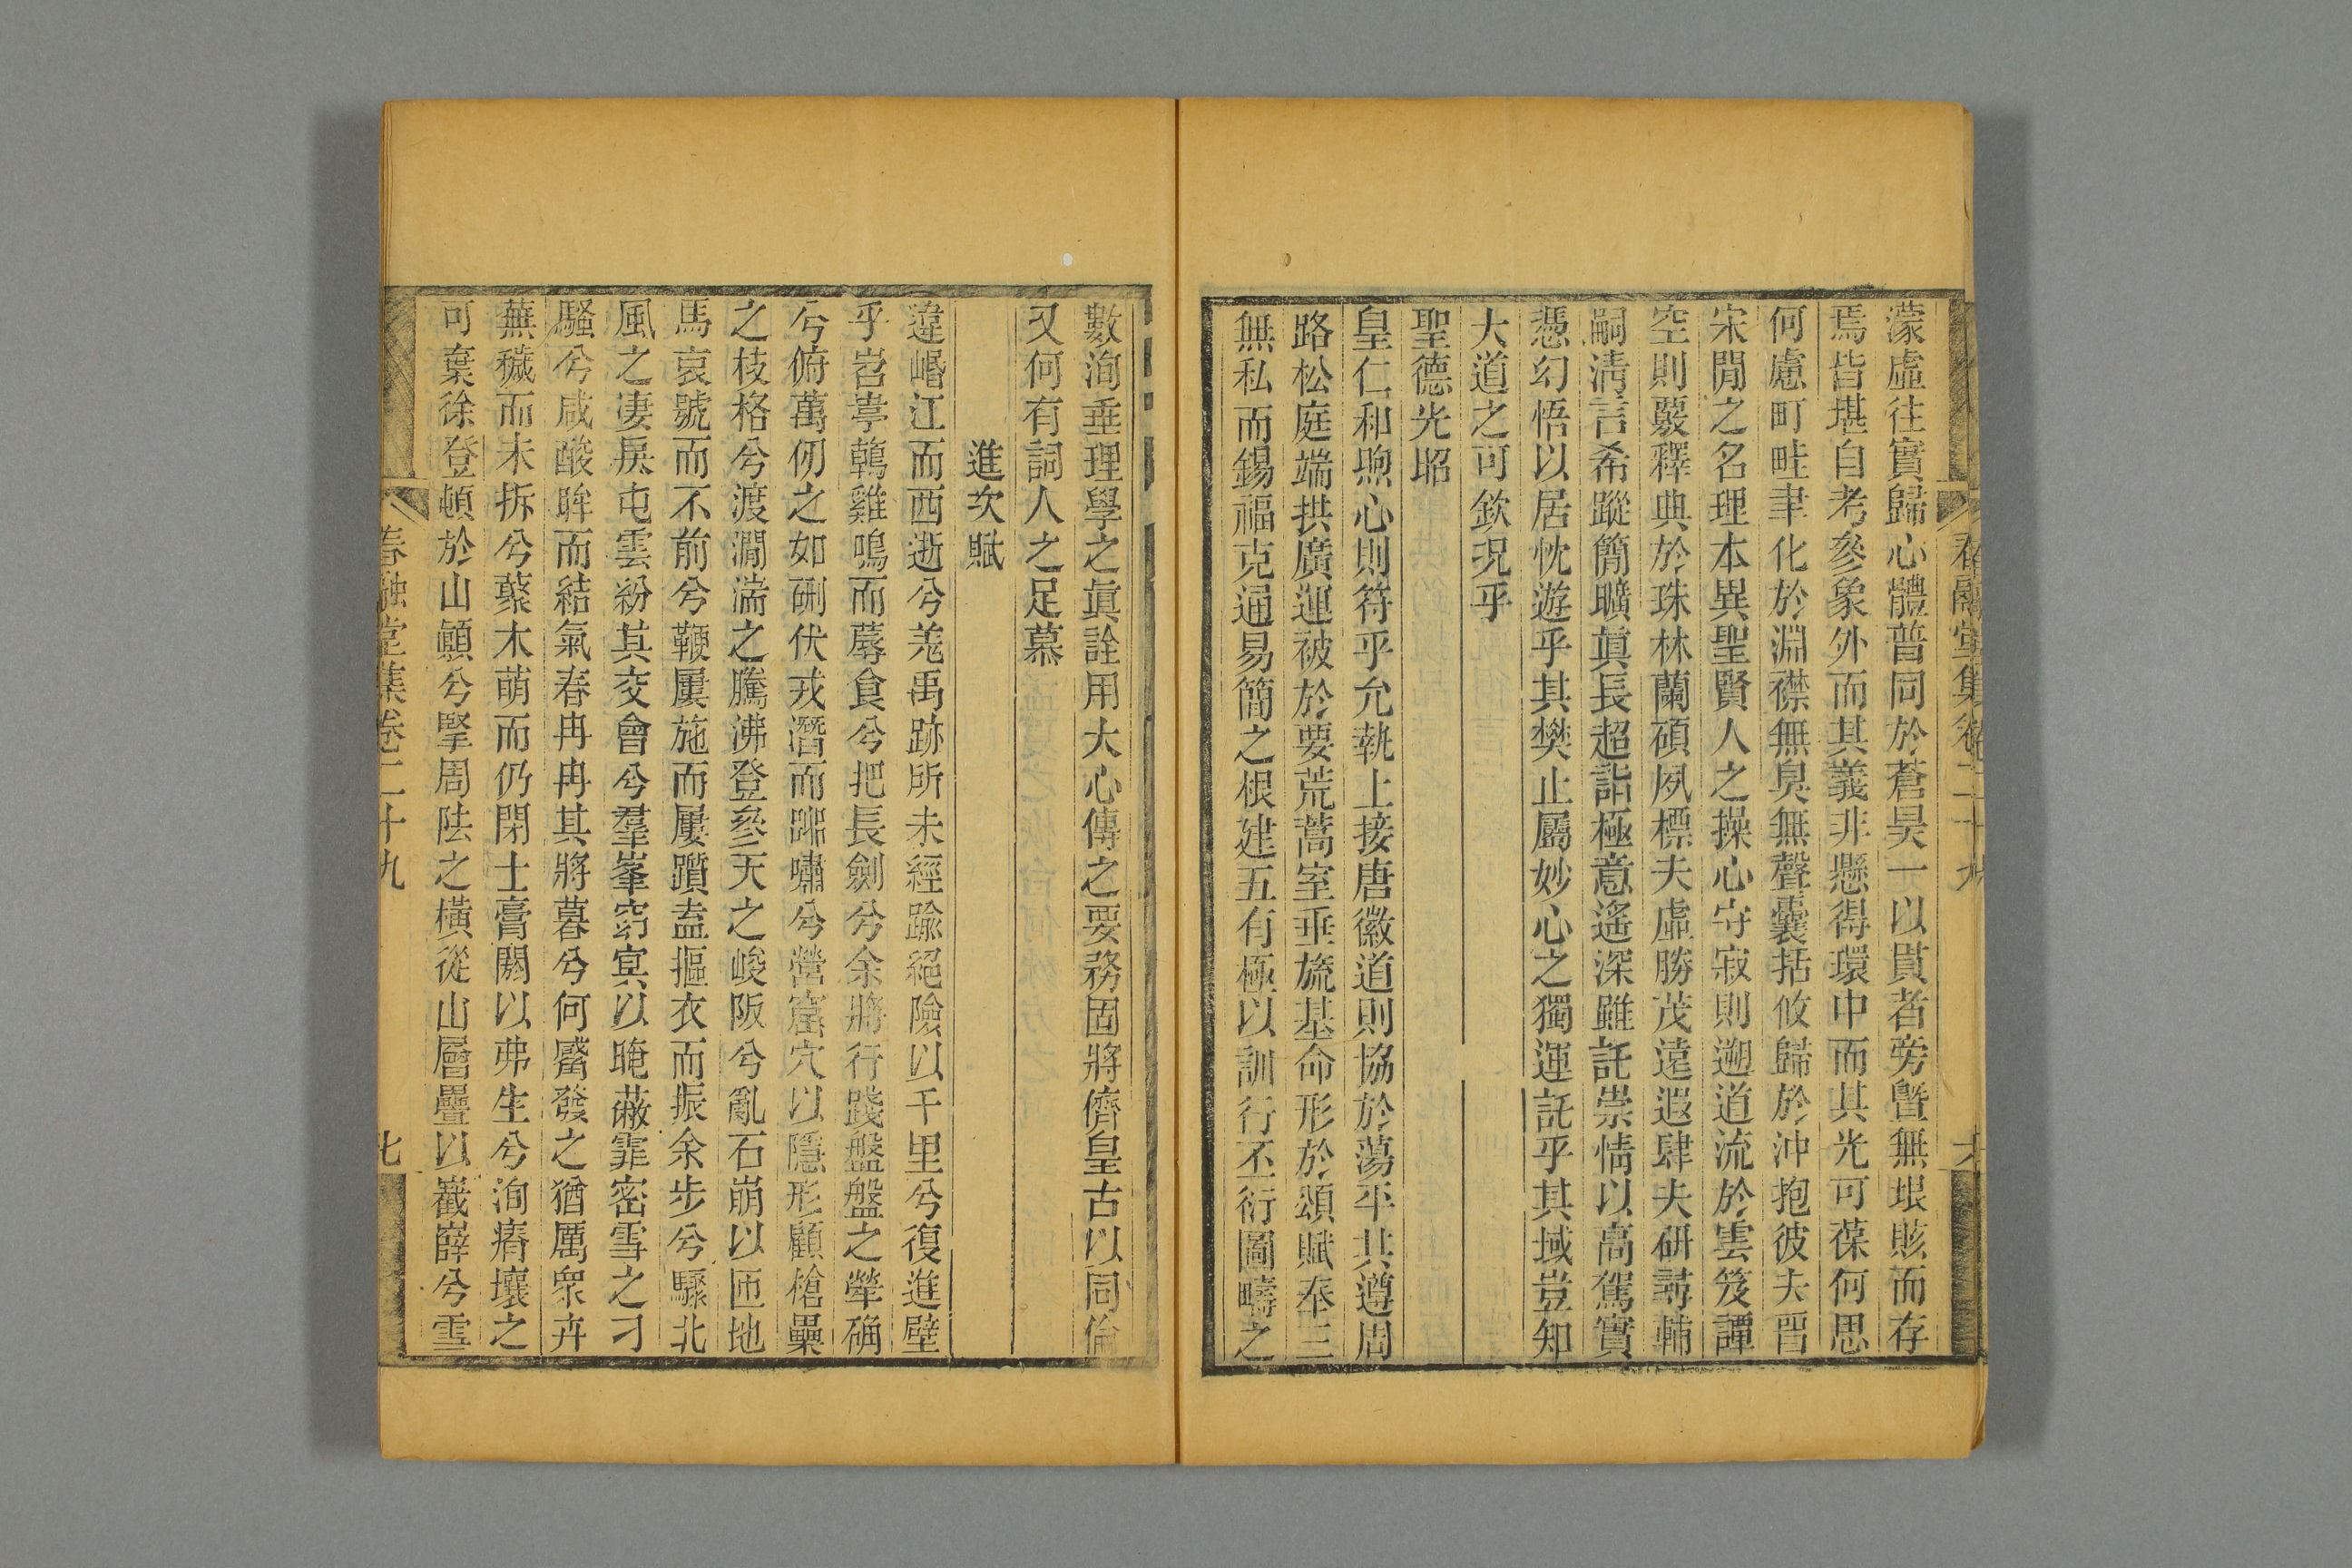 春融堂集卷二十九
濛虛往實歸心體普同於蒼昊一以貫者旁曁無垠賅而存
焉皆堪自考參象外而其義非懸得環中而其光可葆何思
何慮町畦聿化於淵襟無臭無聲囊括攸歸於沖抱彼夫晉
宋閒之名理本異聖賢人之操心守寂則遡道流於雲笈譚
空則覈釋典於珠林蘭碩夙標夫虛勝茂遠遐肆夫研尋輔
嗣淸言希蹤簡曠眞長超詣極意遙深雖託崇情以高駕實
憑幻悟以居忱遊乎其樊止屬妙心之獨運託乎其域豈知
大道之可欽況乎
聖德光昭
皇仁和煦心則符乎允執上接唐徽道則協於蕩平共遵周
路松庭端拱廣運被於要荒蒿室垂旒基命形於頌賦奉三
無私而錫福克通易簡之根建五有極以訓行丕衍圖疇之
數洵垂理學之眞詮用大心傳之要務固將儕皇古以同倫
又何有詞人之足慕
進次賦
違㟭江而西逝兮羌禹跡所未經踰絕險以千里兮復進壁
乎岧葶鶤雞鳴而蓐食兮把長劍兮余將行踐盤盤之犖确
兮俯萬仞之如硎伏戎潛而踞嘯兮營窟穴以隱形顧槍櫐
之枝格兮渡澗湍之騰沸登參天之峻阪兮亂石崩以匝地
馬哀號而不前兮鞭屢施而屢躓盍摳衣而振余步兮驟北
風之淒戾屯雲紛其交會兮羣峯窈冥以晻薆霏密雪之刁
騷兮咸酸眸而結氣春冉冉其將暮兮何觱發之猶厲衆卉
蕪穢而未拆兮蘩木萌而仍閉士膏閼以弗生兮洵瘠壤之
可棄徐登頓於山巔兮擥周阹之橫從山層疊以嶻嶭兮雪
春融堂集卷二十九
七